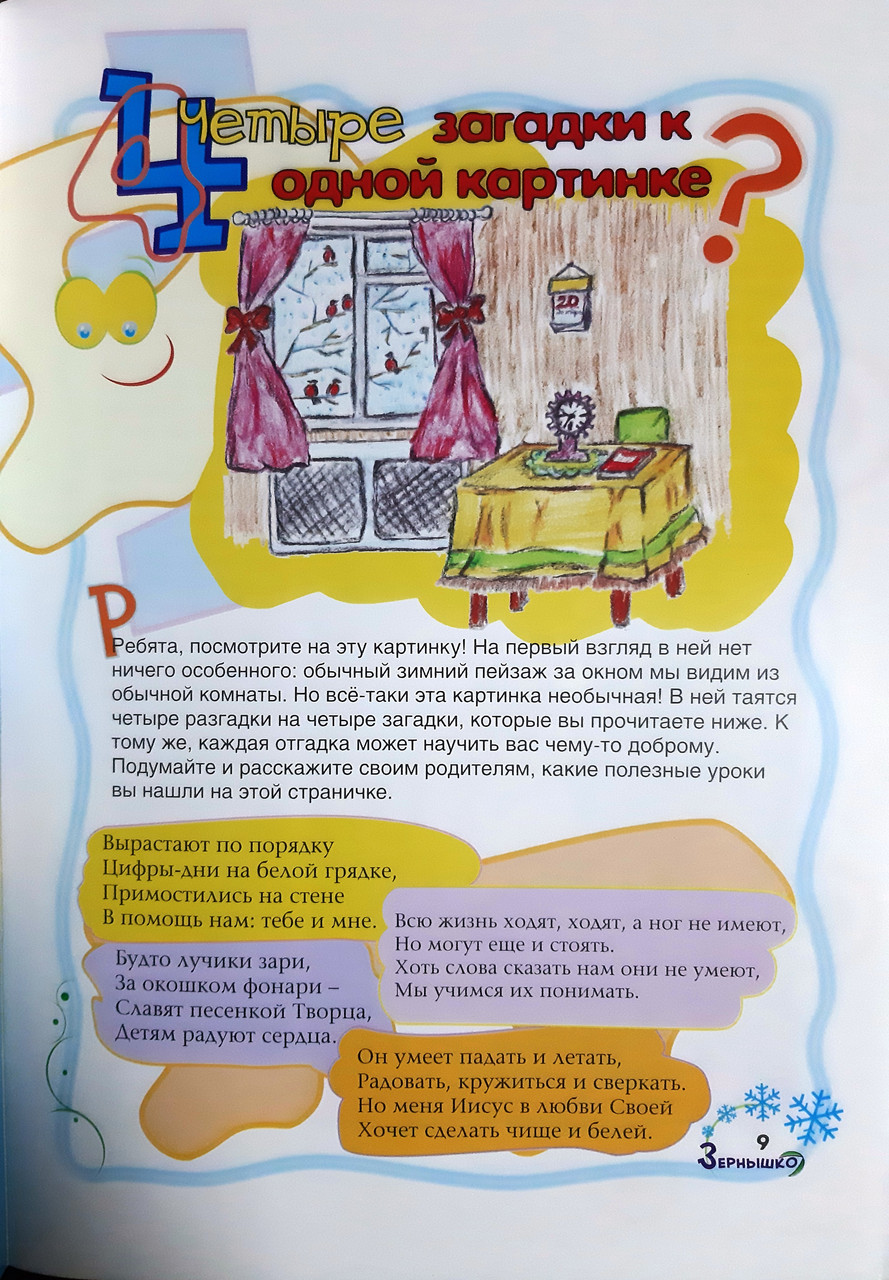 4 Четыре загадки к
одной картинке?
20
Р
Ребята, посмотрите на эту картинку! На первый взгляд в ней нет
ничего особенного: обычный зимний пейзаж за окном мы видим из
обычной комнаты. Но всё-таки эта картинка необычная! В ней таятся
четыре разгадки на четыре загадки, которые вы прочитаете ниже. К
тому же, каждая отгадка может научить вас чему-то доброму.
Подумайте и расскажите своим родителям, какие полезные уроки
вы нашли на этой страничке.
Вырастают по порядку
Цифры-дни на белой грядке,
Примостились на стене
В помощь нам: тебе и мне.
Всю жизнь ходят, ходят, а ног не имеют,
Но могут еще и стоять.
Хоть слова сказать нам они не умеют,
Мы учимся их понимать.
Будто лучики зари,
За окошком фонари –
Славят песенкой Творца,
Детям радуют сердца.
Он умеет падать и летать,
Радовать, кружиться и сверкать.
Но меня Иисус в любви Своей
Хочет сделать чище и белей.
9
Зернышко